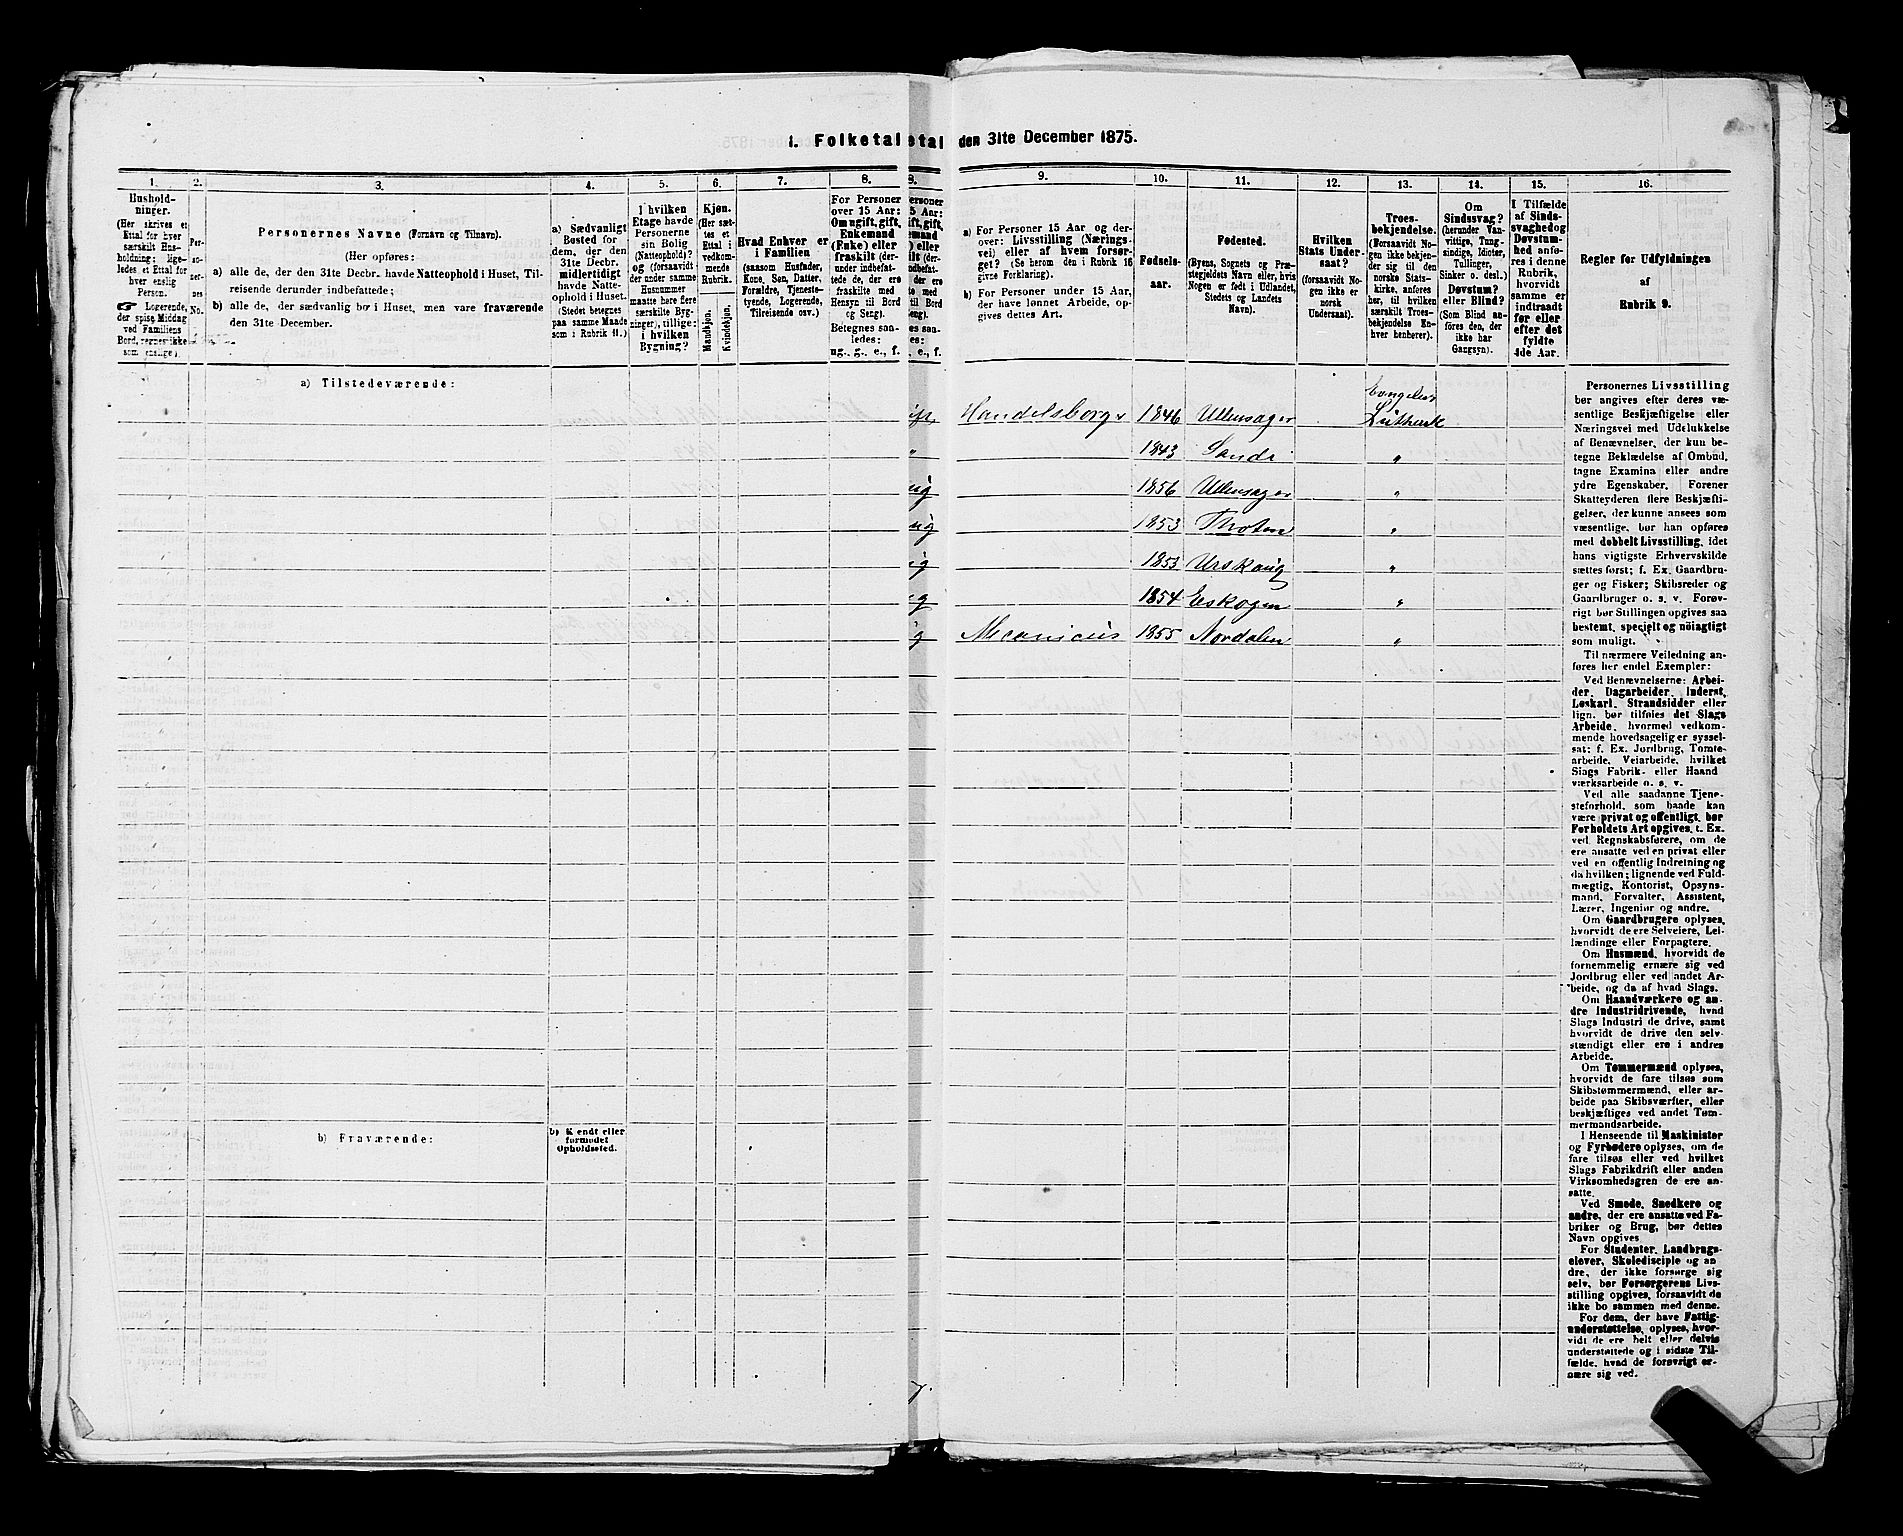 1. Folketal
etal den 31te December 1875.
1.
Husholdninger.
(Her skrives et
Ettal for hver
særskilt Husholdning;
ligeledes et Ettal for
hver enslig
Person.
☛ Logerende,
der spise Middag
ved Familiens
Bord, regnes ikke
som enslige).
2.
Personernes
No.
3.
Personernes Navne (Fornavn og Tilnavn).
(Her opføres:
a) alle de, der den 31te Decbr. havde Natteophold i Huset, Tilreisende derunder indbefattede;
b) alle de, der sædvanlig bor i Huset, men vare fraværende
den 31te December.
4.
a) Sædvanligt
Bosted for
dem, der den
31te Decbr.
midlertidigt
havde Natteophold i Huset.
(Stedet betegnes
paa samme Maade
som i Rubrik 11.)
5.
I hvilken
Etage havde
Personerne
sin Bolig
(Natteophold)?
og (forsaavidt
der under samme
Husnummer
maatte høre flere
særskilte Bygninger), tillige:
i hvilken
Bygning?
6.
Kjøn.
(Her sættes et
Ettal i
vedkommende
Rubrik.
Mandkjøn.
Kvindekjøn.
7.
Hvad Enhver er
i Familien
(saasom Husfader,
Kone, Søn, Datter,
Forældre, Tjenestetyende, Logerende,
Tilreisende osv.)
8.
For Personer
over 15 Aar:
Om ugift, gift,
Enkemand
(Enke) eller
fraskilt (derunder indbefattede de, der ere
fraskilte med
Hensyn til Bord
og Seng).
Betegnes saaledes:
ug., g., e., f.
9.
a) For Personer 15 Aar og derover: Livsstilling (Næringsvei) eller af hvem forsørget? (Se herom den i Rubrik 16
givne Forklaring).
b) For Personer under 15 Aar,
der have lønnet Arbeide, opgives dettes Art.
10.
Fødselsaar.
11.
Fødested.
(Byens, Sognets og Præstegjeldets Navn eller, hvis
Nogen er født i Udlandet,
Stedets og Landets
Navn).
12.
Hvilken
Stats Undersaat?
(forsaavidt Nogen ikke er
norsk
Undersaat).
13.
Troesbekjendelse.
(Forsaavidt Nogen ikke bekjender sig til den
norske Statskirke, anføres
her, til hvilken
særskilt Troesbekjendelse Enhver henhører).
14.
Om
Sindssvag?
(herunder Vanvittige, Tungsindige, Idioter,
Tullinger,
Sinker o. desl.)
Døvstum?
eller Blind?
(Som Blind anføres den, der
ikke har
Gangsyn).
15.
I Tilfælde
af Sindssvaghed og
Døvstumhed anføres i denne
Rubrik,
hvorvidt
samme er
indtraadt
før eller
efter det
fyldte
4de Aar.
16.
Regler for Udfyldningen
af
Rubrik 9.
a) Tilstedeværende:
Handelsborger 1846 Ullensager Evangelisk Luthersk
" 1843 Sande "
ug 1856 Ullensager "
ug 1853 Thoten "
ug 1853 Urskoug "
ug 1854 Eskogen "
ug Mecanicus 1855 Nordalen "
b) Fraværende:
b) Kjendt eller
formodet
Opholdssted.
Personernes Livsstilling
bør angives efter deres væsentlige Beskjæftigelse eller
Næringsvei med Udelukkelse
af Benævnelser, der kun betegne Beklædelse af Ombud,
tagne Examina eller andre
ydre Egenskaber. Forener
Skatteyderen flere Beskjæftigelser, der kunne ansees som
væsentlige, bør han opføres
med dobbelt Livsstilling, idet
hans vigtigste Erhvervskilde
sættes først; f. Ex. Gaardbruger og Fisker; Skibsreder og
Gaardbruger o. s. v. Forøvrigt bør Stillingen opgives saa
bestemt, specielt og nöiagtigt
som muligt.
Til nærmere Veiledning anføres her endel Exempler:
Ved Benævnelserne: Arbeider, Dagarbeider, Inderst,
Løskarl, Strandsidder eller
lign. bør tilføies det Slags
Arbeide, hvormed vedkommende hovedsagelig er sysselsat; f. Ex. Jordbrug, Tomtearbeide, Veiarbeide, hvilket
Slags Fabrik- eller Haandværksarbeide o. s. v.
Ved alle saadanne Tjenesteforhold, som baade kan
være privat og offentligt, bør
Forholdets Art opgives, t. Ex.
ved Regnskabsførere, om de
ere ansatte ved en privat eller
ved en offentlig Indretning og
da hvilken; lignende ved Fuldmægtig, Kontorist, Opsynsmand, Forvalter, Assistent,
Lærer, Ingeniør og andre.
Om Gaardbrugere oplyses,
hvorvidt de ere Selveiere, Leilændinge eller Forpagtere.
Om Husmænd, hvorvidt de
fornemmelig ernære sig ved
Jordbrug eller ved andet Arbeide, og da af hvad Slags.
Om Haandværkere og andre Industridrivende, hvad
Slags Industri de drive, samt
hvorvidt de drive den selvstændigt eller ere i andres
Arbeide.
Om Tømmermænd oplyses,
hvorvidt de fare tilsøs som
Skibstømmermænd, eller arbeide paa Skibsværfter, eller
beskjæftiges ved andet Tømmermandsarbeide.
I Henseende til Maskinister
og Fyrbødere oplyses, om de
fare tilsøs eller ved hvilket
Slags Fabrikdrift eller anden
Virksomhedsgren de ere ansatte.
Ved Smede, Snedkere og
andre, der ere ansatte ved Fabriker og Brug, bør dettes
Navn opgives
For Studenter, Landbrugselever, Skoledisciple og andre, der ikke forsørge sig
selv, bør Forsørgerens Livsstilling opgives, forsaavidt de
ikke bo sammen med denne.
For dem, der have Fattigunderstøttelse, oplyses, hvorvidt de ere helt eller delvis
understøttede og i sidste Tilfælde, hvad de forøvrigt ernære sig ved.